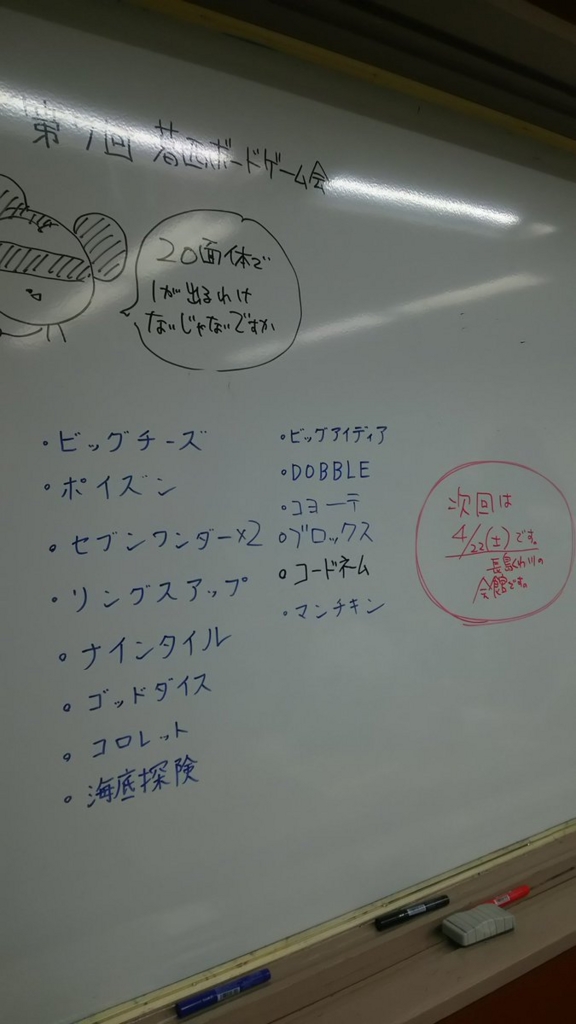 第7回 葛西ボードゲーム会
20面体で
1が出るわけ
ないじゃないですか
・ビッグチーズ
・ポイズン
・セブンワンダー×2
・リングスアップ
・ナインタイル
・ゴッドダイス
・コロレット
・海底探険
・ビッグアイディア
・DOBBLE
・コヨーテ
・ブロックス
・コードネーム
・マンチキン
次回は
4/22(土)です。
長島くわ川の
会館です。